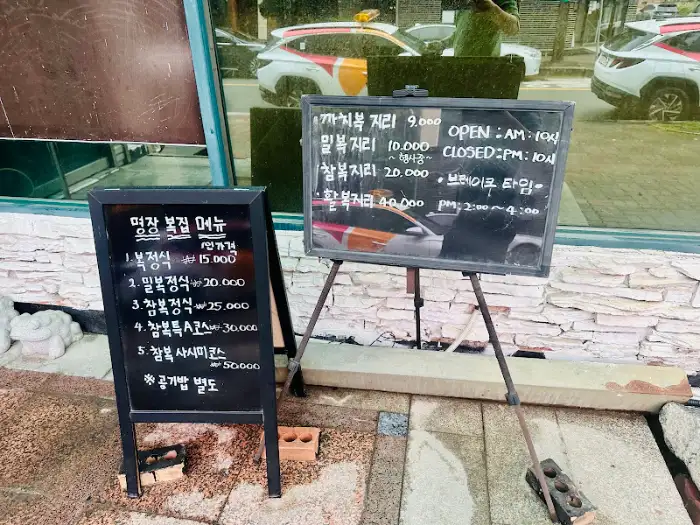 명장 복집 메뉴
1인가격
1. 복정식 ₩15.000
2. 밀복정식 ₩20.000
3. 참복정식 ₩25.000
4. 참복특A코스 ₩30.000
5. 참복 사시미코스
₩50.000
※ 공기밥 별도
까치복 지리 9.000
밀복지리 10.000
~행사중~
참복지리 20.000
활복지리 40.000
OPEN : AM : 10시
CLOSED : PM : 10시
• 브레이크 타임 •
PM 2:00 ~ 4:00